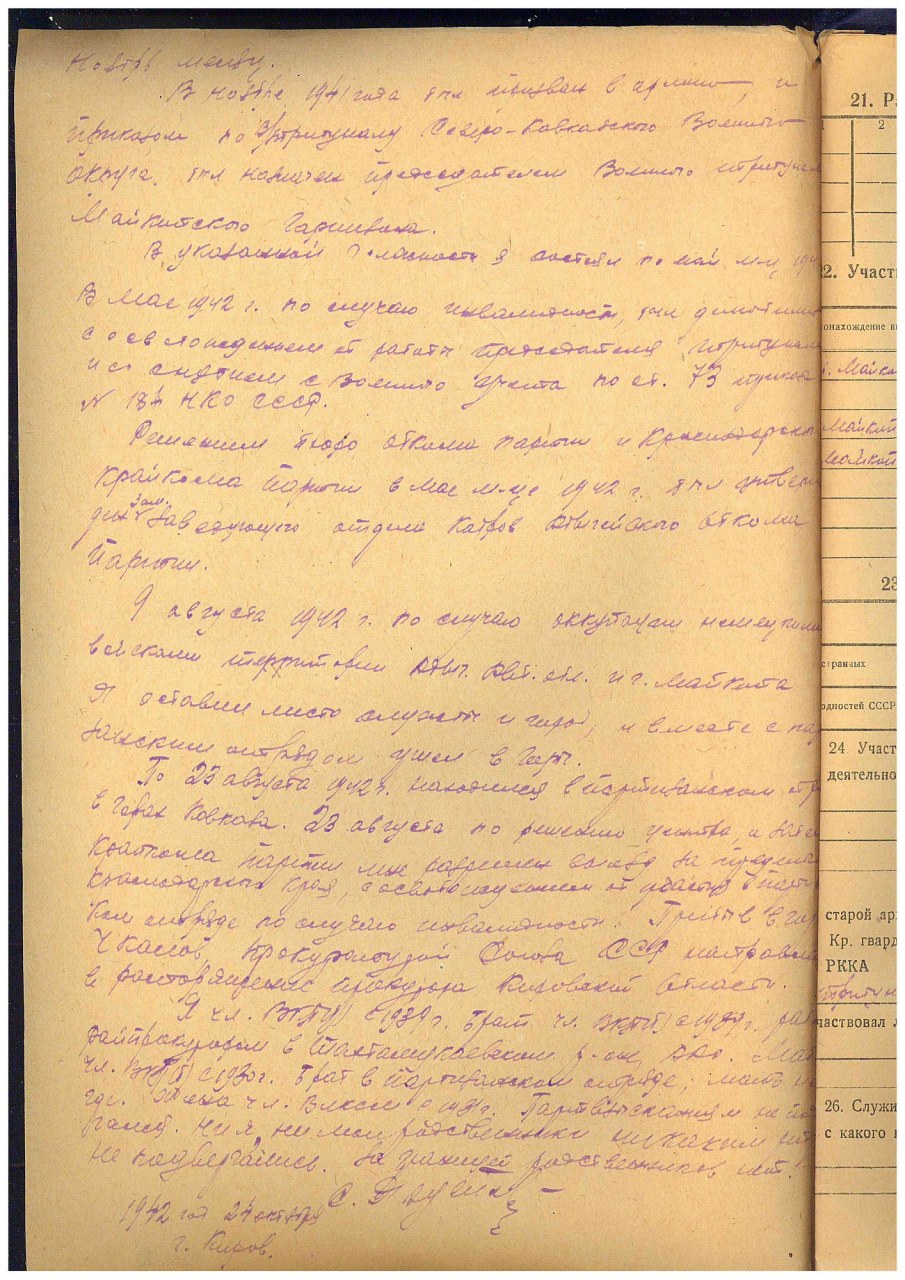 Ноябрь месяц.
В ноябре 1941 года был призван в армию, и
приказом по В/трибуналу Северо-Кавказского Военного
Округа, был назначен председателем Военного трибунал
Майкопского Гарнизона.
В указанной должности я состоял по май м-ц 194
В мае 1942 г. по случаю инвалидности, был демобили
с освобождением от работы председателя трибунала
и со снятием с военного учета по ст. 73 приказа
N 184 НКО СССР.
Решением бюро обкома партии и Краснодарского
Крайкома Партии в мае м-це 1942 г. был утвер
ден Зам. Заведующего отдела кадров Адыгейского обкома
Партии.
9 августа 1942 г. по случаю оккупации немецкими
войсками территории Адыг. Авт. обл. и г. Майкопа
Я оставил место службы и город, и вместе с пар
занским отрядом ушел в Горы.
По 23 августа 1942 г. находился в партизанском отр
в Горах Кавказа. 23 августа по решению центра, и затем
Крайкома Партии мне разрешен выезд за пределы
Краснодарского Края, с освобождением от участия в парти
ком отряде по случаю инвалидности. Прибыв в гор
Чкалов, Прокуратурой Союза ССР направлен
в распоряжение прокурора Кировской Области.
Я чл. ВКП(б) с 1939 г. Брат чл. ВКП(б) с 1939 г. раб
райпрокурором в Тахтамукаевском р-оне, ААО. Мать
чл. ВКП(б) с 1930 г. Брат в партизанском отряде, мать
где. Жена чл. ВЛКСМ с 1931 г. Партвзысканиям не по
гался. Ни я, ни мои родственники никаким
не подвергались. За границей родственников нет.
1942 год 24 октября С.
г. Киров.
21. Р
1 2
2. Участ
онахождение в
г. Майко
Майкоп
Майкоп
23
странных
одностей СССР
24 Участ
деятельно
старой ар
Кр. гвард
РККА
Трибун
частвовал л
26. Служи
с какого